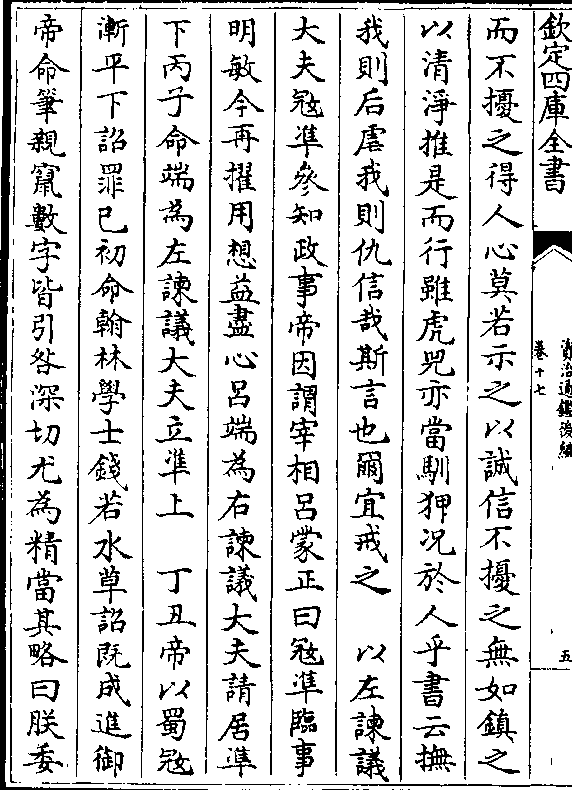 欽定四庫全書
資治通鑑後編
卷十七
五
而不擾之得人心莫若示之以誠信不擾之無如鎮之
以清淨推是而行雖虎兕亦當馴狎况於人乎書云撫
我則后虐我則仇信哉斯言也爾宜戒之 以左諫議
大夫㓂凖參知政事帝因謂宰相吕蒙正曰㓂凖臨事
明敏今再擢用想益盡心吕端為右諫議大夫請居凖
下丙子命端為左諫議大夫立凖上 丁丑帝以蜀㓂
漸平下詔罪已初命翰林學士錢若水草詔既成進御
帝命筆親竄數字皆引咎深切尤為精當其略曰朕委